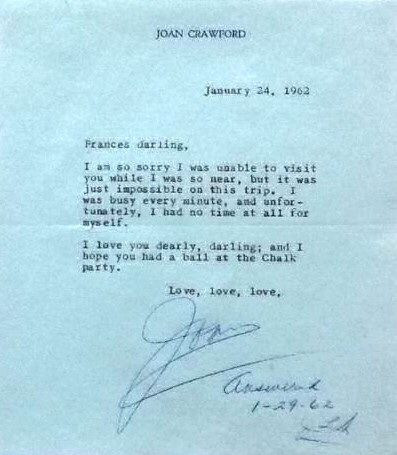 JOAN CRAWFORD
January 24, 1962
Frances darling,
I am so sorry I was unable to visit
you while I was so near, but it was
just impossible on this trip. I
was busy every minute, and unfor-
tunately, I had no time at all for
myself.
I love you dearly, darling; and I
hope you had a ball at the Chalk
party.
Love, love, love,
Joan
Answered
1-29-62